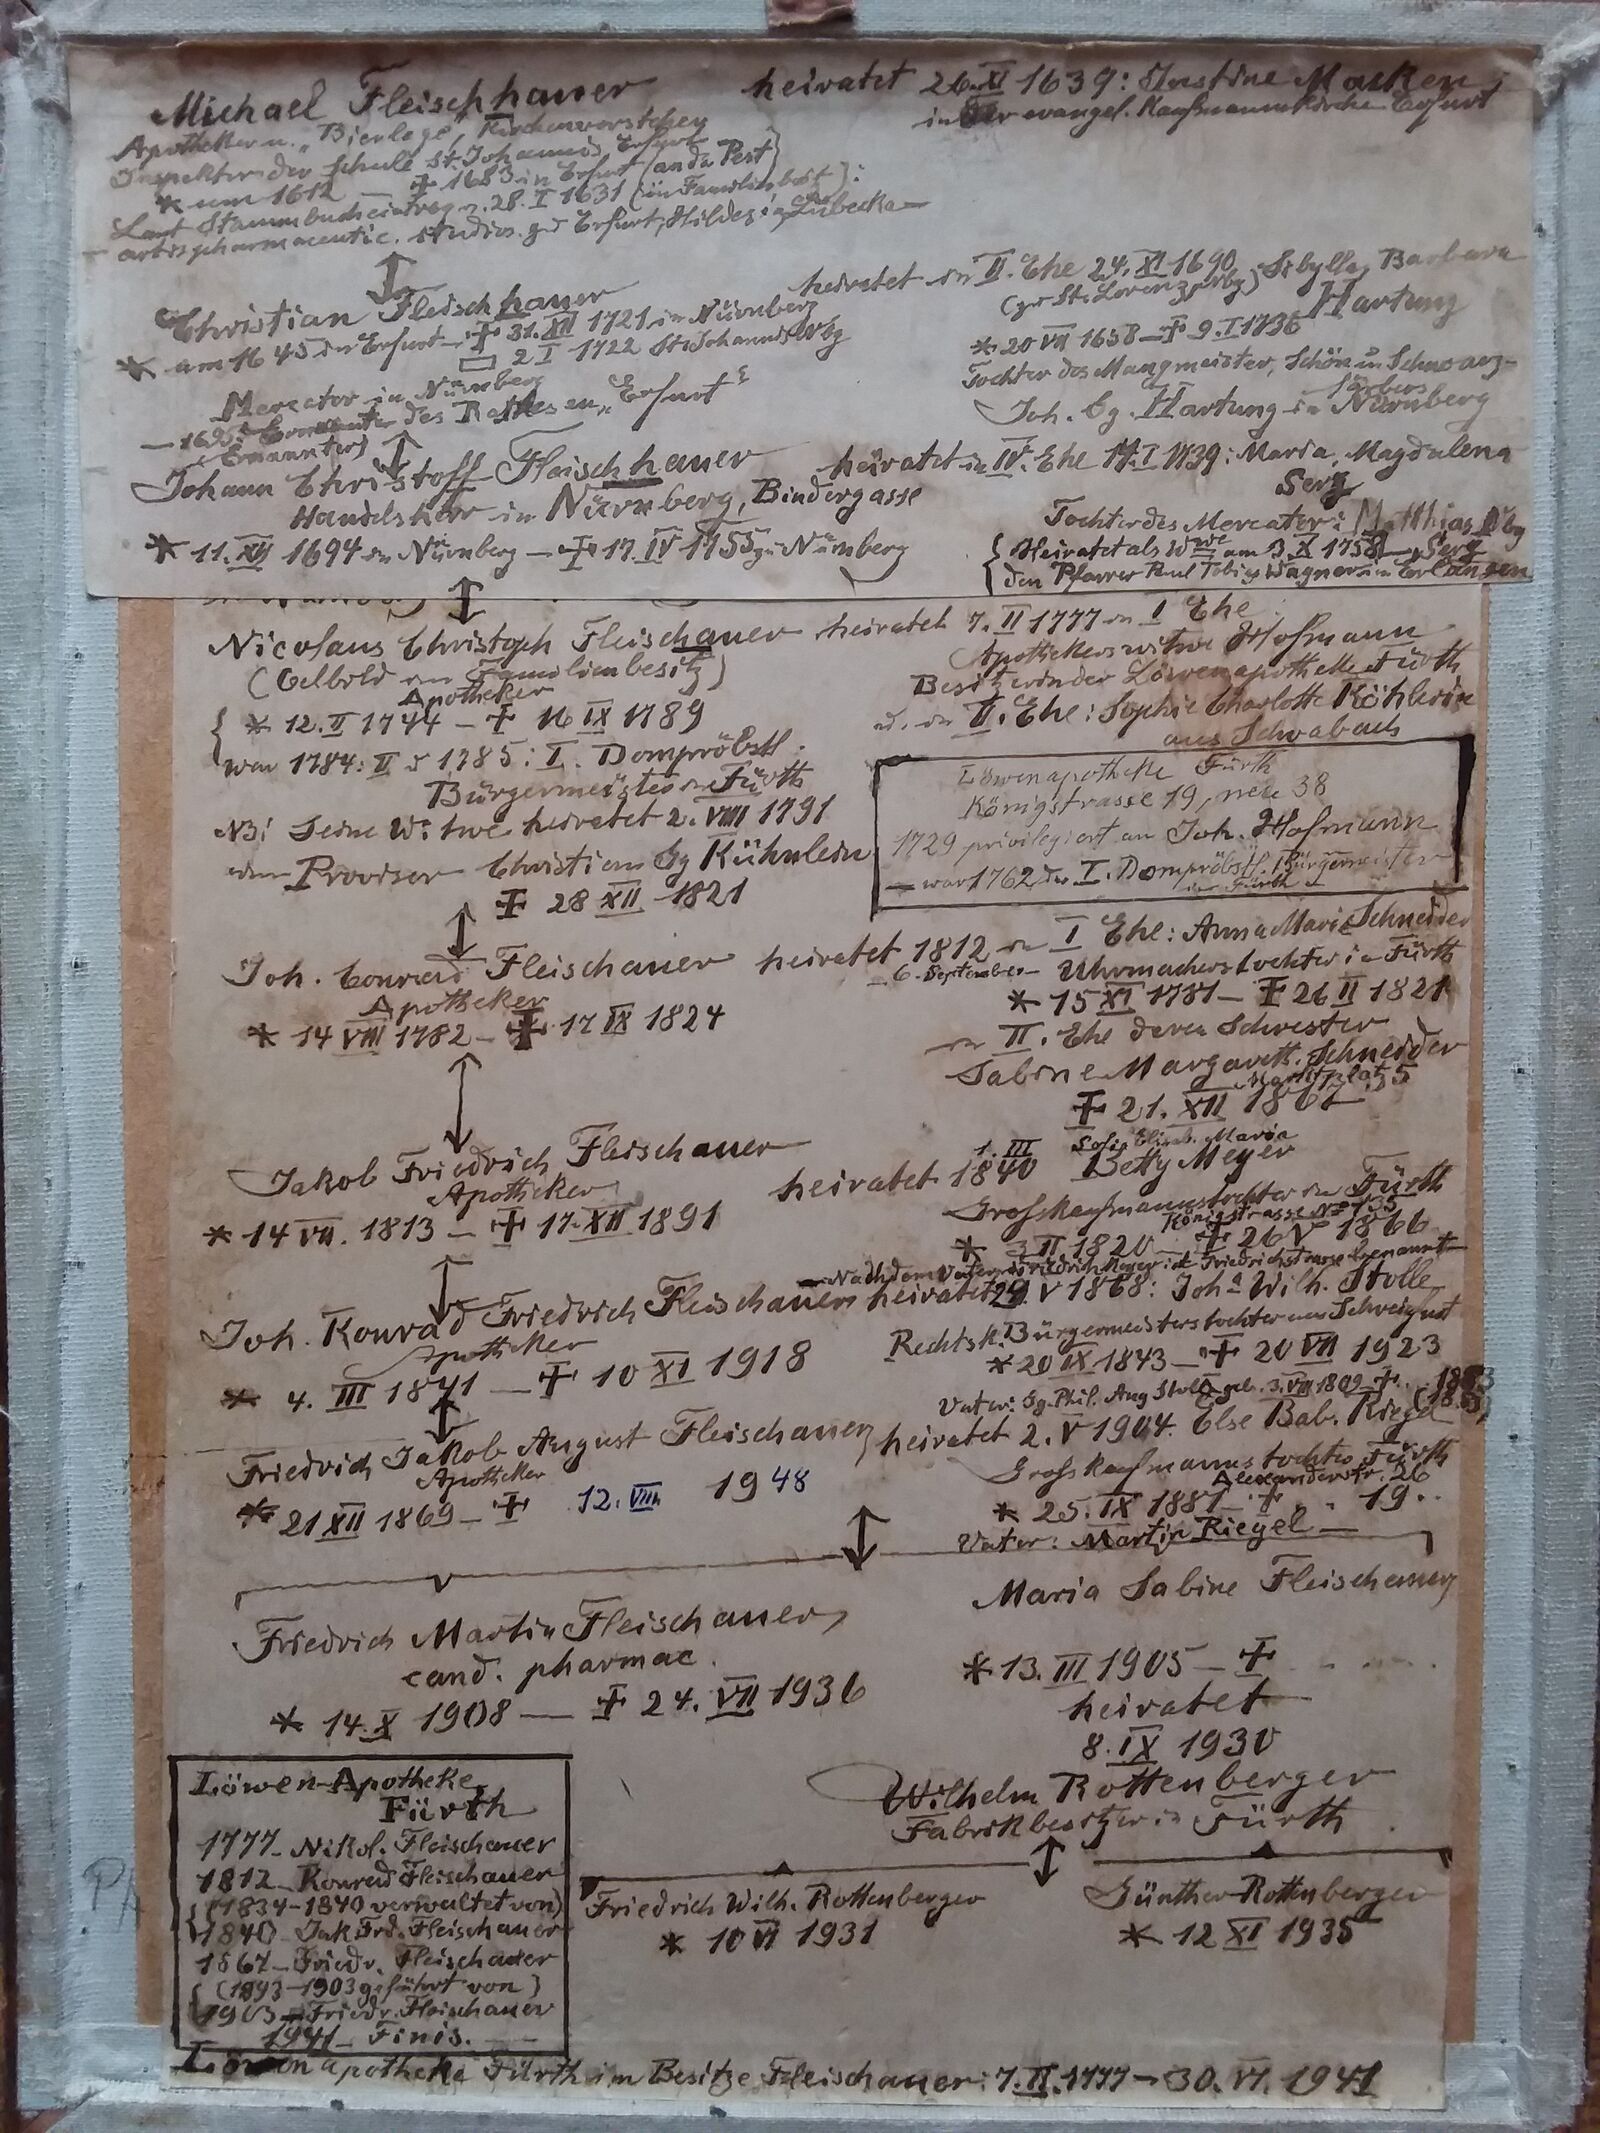 Michael Fleischhauer heiratet 26. XI 1639: Justine Macken
in der evangel. Kaufmannskirche Erfurt
Apotheker u. „Bierlege", Kirchenvorsteher
Inspektor der Schule St. Johannis, Erfurt
* um 1612 ✝ 1683 in Erfurt (an der Pest)
Laut Stammbucheintrag v. 28. I 1631 (in Familienbesitz):
artis pharmaceutic. studios.
Christian Fleischhauer heiratet in II. Ehe 24. XI 1690 Sibylla Barbara
(zu St. Lorenz, Nbg) Hartung
* am 1645 in Erfurt - ✝ 31. XII 1721 in Nürnberg
2 I 1722 St. Johannis Nbg
* 20 VII 1658 - ✝ 9. I 1736
Mercator in Nürnberg
Tochter des Mangmeister, Schön u Schwarz-
färbers
Joh. Gg. Hartung in Nürnberg
— 1695: des Rathes en „Erfurt"
(Ernannter)
Johann Christoff Fleischhauer heiratet in IV. Ehe 14. I 1739: Maria Magdalena
Serz
Handelsherr in Nürnberg, Bindergasse
Tochter des Mercator: Matthias Nbg
Serz
* 11. XII 1694 in Nürnberg — ✝ 17. IV 1755 zu Nürnberg
Heiratet als Wwe am 3. X 1758
den Pfarrer Paul Tobias Wagner in Erlangen
Nicolaus Christoph Fleischauer heiratet 7. II 1777 in I Ehe
(Oelbild in Familienbesitz)
Apothekerswitwe Hofmann
Apotheker
Besitzerin der Löwenapotheke Fürth
* 12. II 1744 - ✝ 16 IX 1789
u. in II. Ehe: Sophie Charlotte Köhlerin
aus Schwabach
war 1784: II u 1785: I. Dompröbstl.
Bürgermeister in Fürth
NB: Seine Witwe heiratet 2. VIII 1791
den Provisor Christian Gg Kühnlein
✝ 28 XII 1821
Löwenapotheke Fürth
Königstrasse 19, neu 38
1729 privilegiert an Joh. Hofmann
— war 1762 der I. Dompröbstl. Bürgermeister
in Fürth
Joh. Conrad Fleischauer heiratet 1812 in I Ehe: Anna Maria Schneider
6. September Uhrmacherstochter in Fürth
Apotheker
* 15 XI 1781 - ✝ 26 II 1821
* 14 VIII 1782 - ✝ 17 IX 1824
in II. Ehe deren Schwester
Sabine Margareth. Schneider
Marktplatz 5
✝ 21. XII 1862
Jakob Friedrich Fleischauer
Apotheker
1. III Sofie Elisab. Maria
heiratet 1840 Betty Meyer
Grosskaufmannstochter in Fürth
Königstrasse No 135
* 14 VII. 1813 - ✝ 17. XII 1891
* 3 II 1820 - ✝ 26 V 1866
Nach dem Vater Friedrich Meyer ist Friedrichstrasse benannt
Joh. Konrad Friedrich Fleischauer heiratet 29. V 1868: Joha Wilh. Stolle
Apotheker
Rechtsk. Bürgermeisterstochter aus Schweinfurt
* 4. III 1841 - ✝ 10 XI 1918
* 20 IX 1843 - ✝ 20 VII 1923
Vater: Gg. Phil. Aug Stolle geb. 3. VII 1809 ✝
Friedrich Jakob August Fleischauer, heiratet 2. V 1904. Else Bab. Riegel
Apotheker
Grosskaufmannstochter Fürth
Alexanderstr. 26
* 21 XII 1869 - ✝ 12. VIII. 1948
* 25. IX 1881 - ✝ . . 19..
Vater: Martin Riegel —
Friedrich Martin Fleischauer,
cand. pharmac.
* 14. X 1908 — ✝ 24. VII 1936
Maria Sabine Fleischauer
* 13. III 1905 - ✝
heiratet
8. IX 1930
Wilhelm Rottenberger
Fabrikbesitzer in Fürth
Friedrich Wilh. Rottenberger
* 10 VI 1931
Günther Rottenberger
* 12 XI 1935
Löwen-Apotheke
Fürth
1777- Nikol. Fleischauer
1812- Konrad Fleischauer
(1834-1840 verwaltet von)
1840- Jak Frd. Fleischauer
1867- Friedr. Fleischauer
(1893-1903 geführt von)
1903- Friedr. Fleischauer
1941- Finis.
Löwenapotheke Fürth im Besitze Fleischauer: 7. II. 1777 - 30. VI. 1941